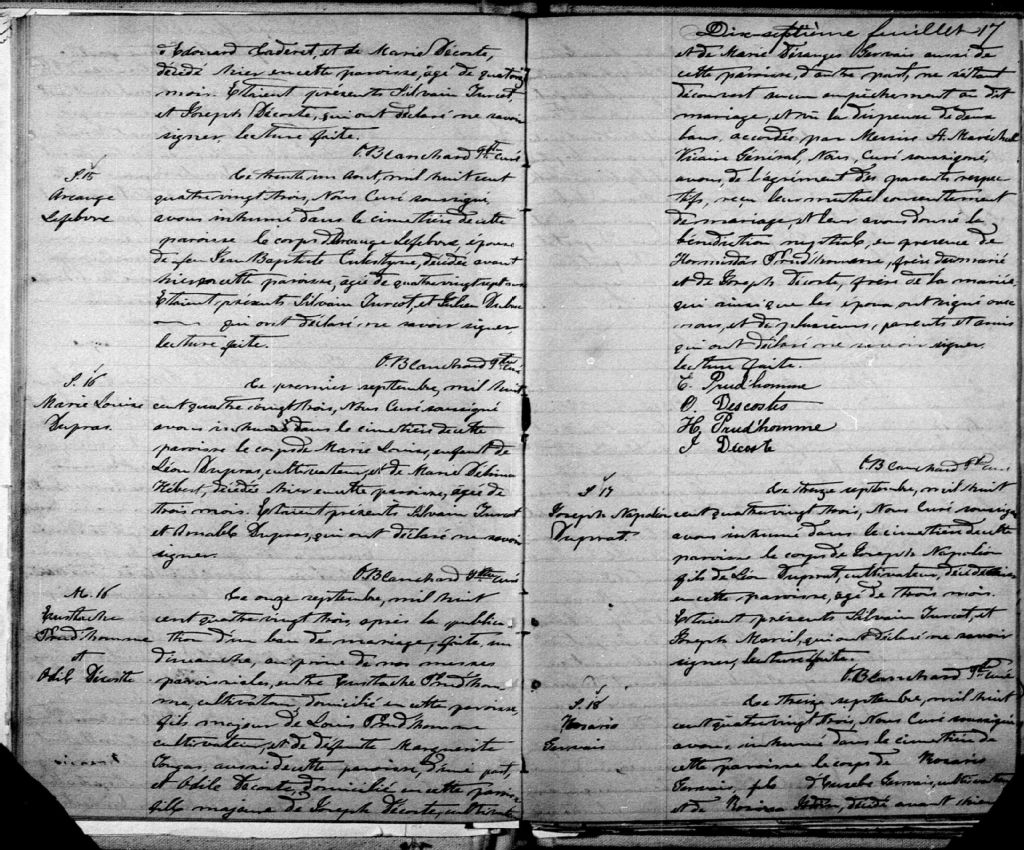 d'Edouard Caderet, et de Marie Décoste,
décédé hier en cette paroisse, agé de quatorze
mois. Etaient présents Silvain Turcot,
et Joseph Décoste, qui ont déclaré ne savoir
signer, lecture faite.
O. Blanchard Ptre curé
S. 15
Arcange
Lefebvre
Le trente un Aout, mil huit cent
quatre vingt trois, Nous Curé soussigné,
avons inhumé dans le cimetière de cette
paroisse le corps d'Arcange Lefebvre, épouse
de feu Jean Baptiste décédée avant
hier en cette paroisse, agée de quatre vingt sept ans
Etaient présents Silvain Turcot, et Julien
qui ont déclaré ne savoir signer,
lecture faite.
O. Blanchard Ptre curé
S. 16
Marie Louise
Dupras.
Le premier septembre, mil huit
cent quatre vingt trois, Nous Curé soussigné
avons inhumé dans le cimetière de cette
paroisse le corps de Marie Louise, enfant de
Léon Dupras, cultivateur, et de Marie Délima
Hébert, décédée hier en cette paroisse, agée de
trois mois. Etaient présents Silvain Turcot
et Amable Dupras, qui ont déclaré ne savoir
signer.
O. Blanchard Ptre curé
M. 16
Eustache
Prud'homme
et
Odile Décoste
Le onze septembre, mil huit
cent quatre vingt trois, après la publica
tion d'un ban de mariage, faite un
dimanche, au prone de nos messes
paroissiales, entre Eustache Prud'hom
me, cultivateur, domicilié en cette paroisse,
fils majeur de Louis Prud'homme
cultivateur, et de défunte Marguerite
aussi de cette paroisse, d'une part,
et Odile Décoste, domiciliée en cette paroisse
fille majeure de Joseph Décoste, cultivateur
Dix septième feuillet 17
et de Marie Déranges Gervais aussi de
cette paroisse, d'autre part, ne s'étant
découvert aucun empêchement au dit
mariage, et vu la dispense de deux
bans, accordée par Messire A. Maréchal
Vicaire Général, Nous, Curé soussigné,
avons, de l'agrément des parents respec
tifs, reçu leur mutuel consentement
de mariage, et leur avons donné la
bénédiction nuptiale, en présence de
Hormisdas Prud'homme, frère du marié
et de Joseph Décoste, frère de la mariée,
qui ainsi que les époux ont signé avec
nous, et de plusieurs, parents et amis
qui ont déclaré ne savoir signer,
lecture faite.
E. Prud'homme
O. Descostes
H. Prud'homme
J Décoste
O. Blanchard Ptre curé
S 17
Joseph Napoléon
Duprat.
Le treize septembre, mil huit
cent quatre vingt trois, Nous Curé soussigné
avons inhumé dans le cimetière de cette
paroisse le corps de Joseph Napoléon
fils de Léon Duprat, cultivateur, décédé hier
en cette paroisse, agé de trois mois.
Etaient présents Silvain Turcot, et
Joseph Marcil, qui ont déclaré ne savoir
signer, lecture faite.
O. Blanchard Ptre curé
S. 18
Rosario
Gervais
Le treize septembre, mil huit
cent quatre vingt trois, Nous Curé soussigné
avons inhumé dans le cimetière de
cette paroisse le corps de Rosario
Gervais, fils d'Eusèbe Gervais, cultivateur
et de décédé avant hier